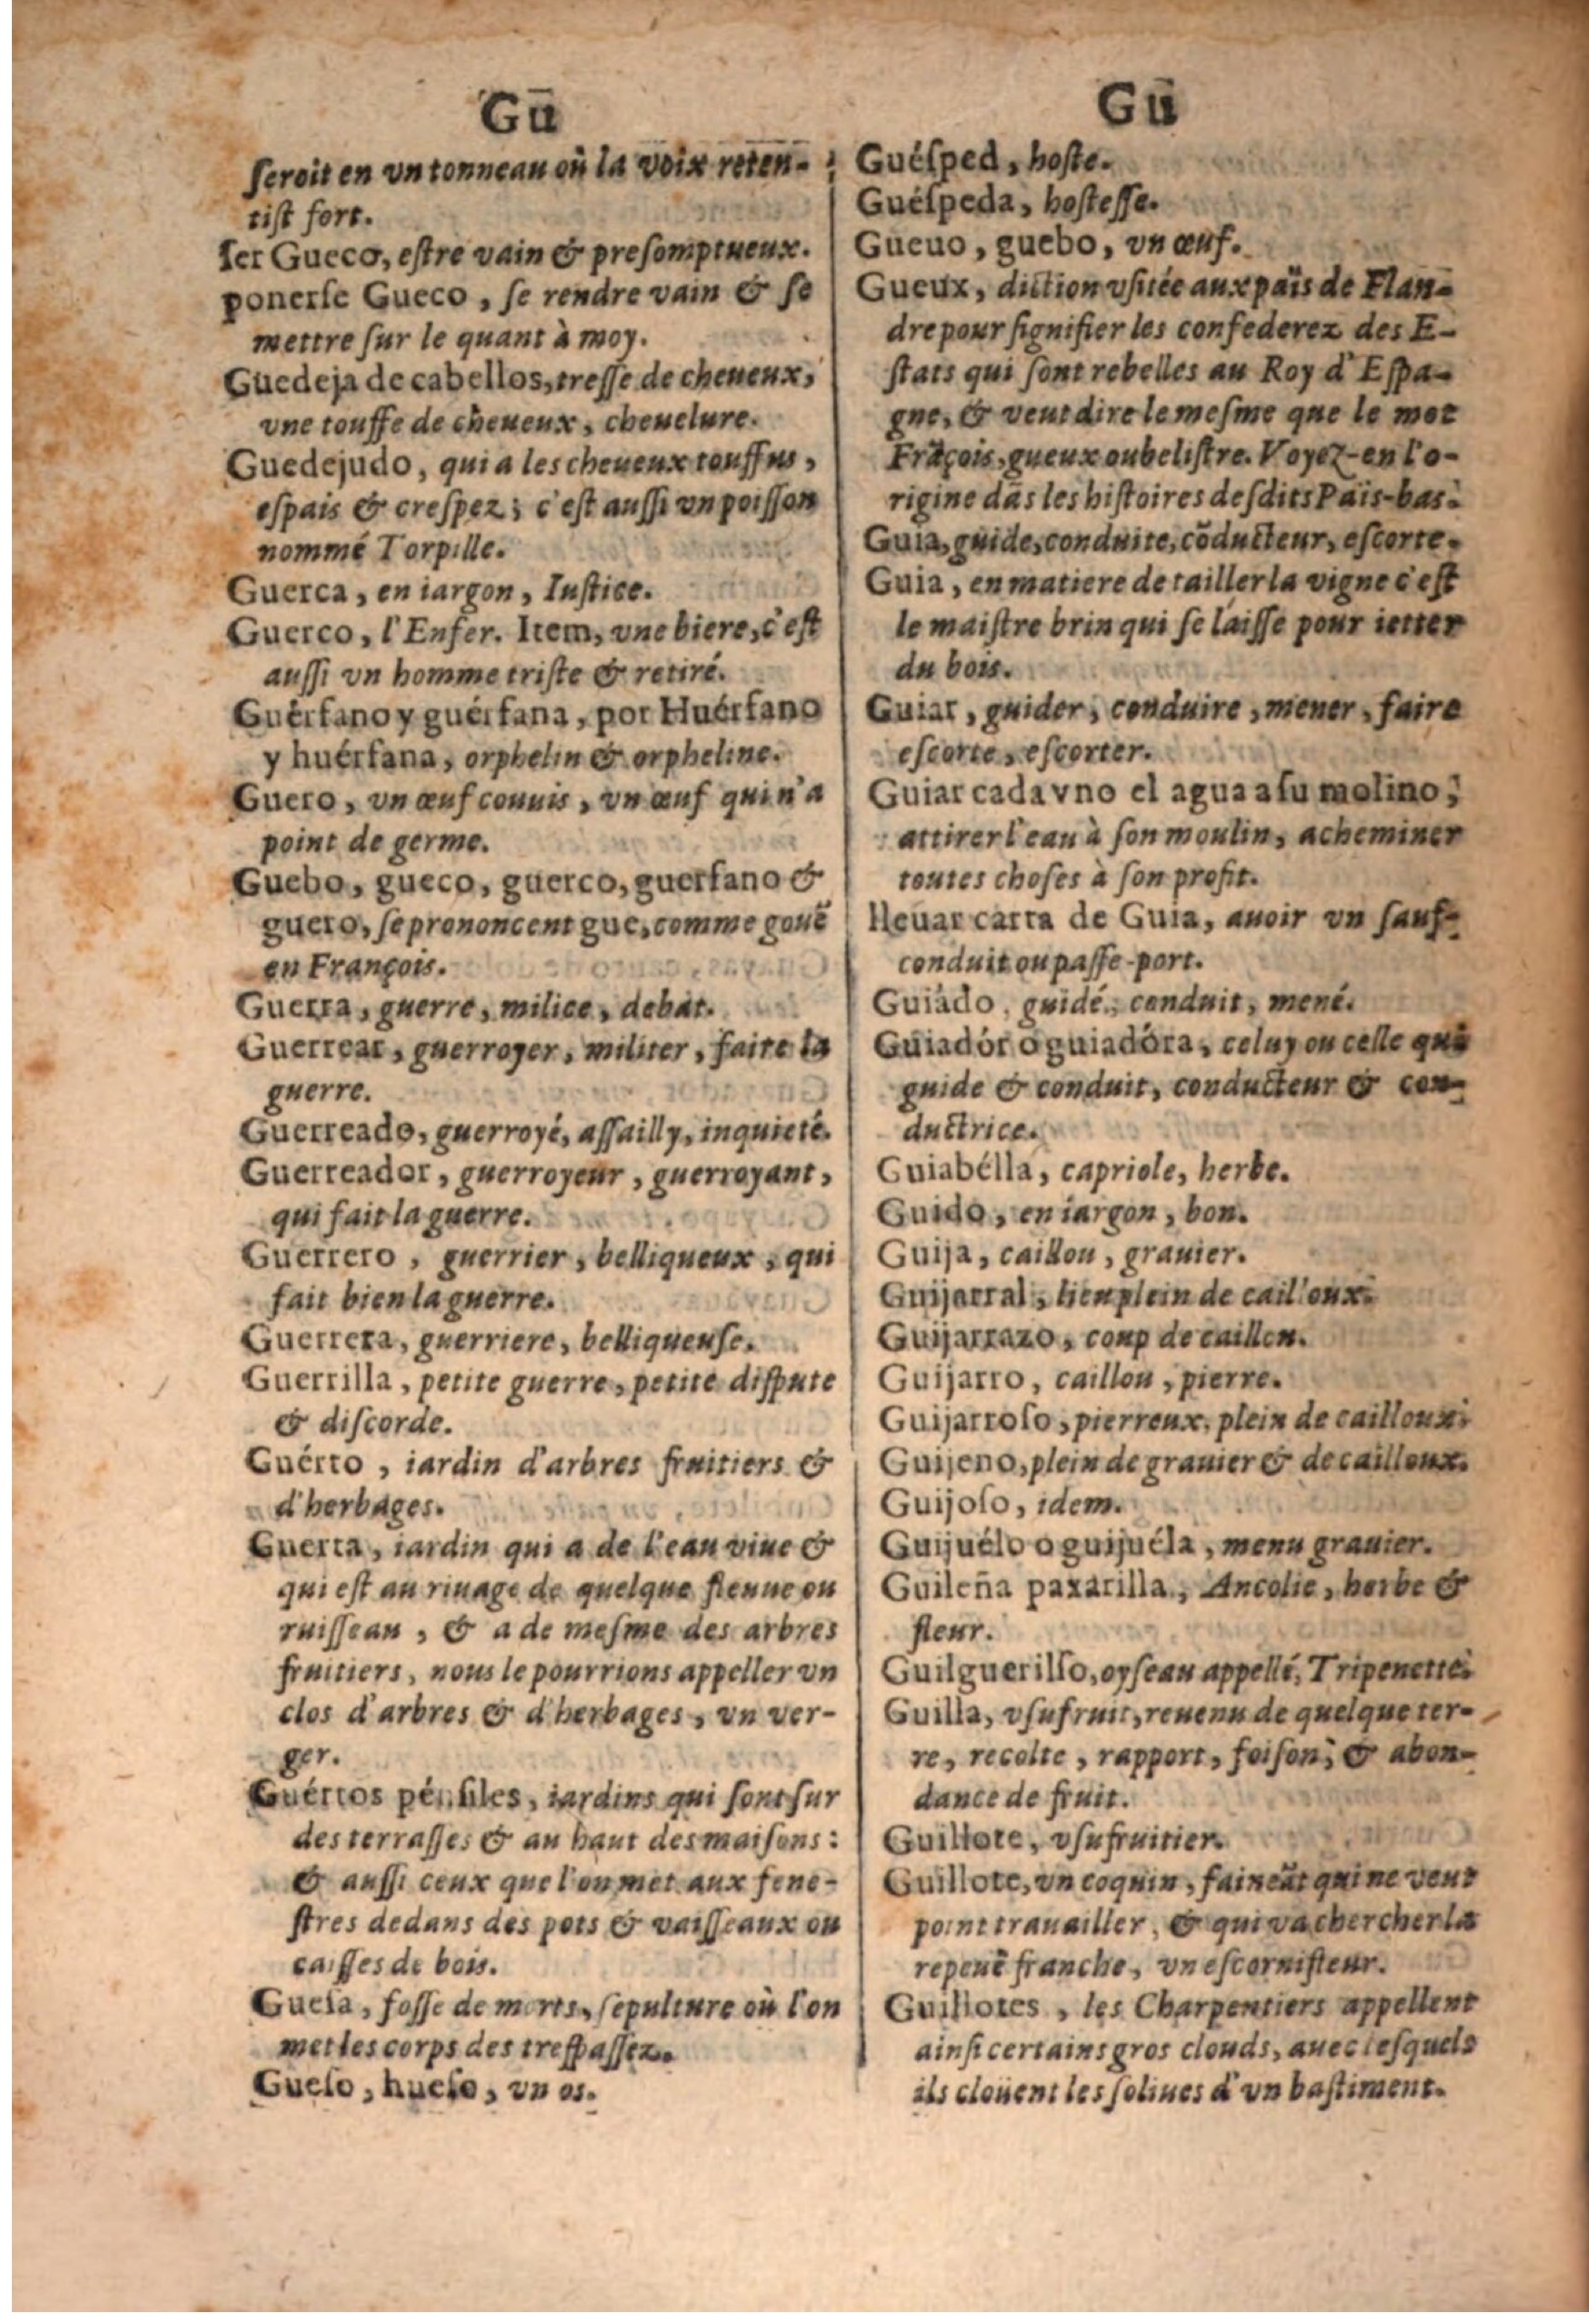 Gū
ſeroit en vn tonneau où la voix reten-
tiſt fort.
ſer Gueco, eſtre vain & preſomptueux.
ponerſe Gueco, ſe rendre vain & ſe
mettre ſur le quant à moy.
Guedeja de cabellos, treſſe de cheueux,
vne touffe de cheueux, cheuelure.
Guedejudo, qui a les cheueux touffus,
eſpais & creſpez; c'eſt auſſi vn poiſſon
nommé Torpille.
Guerca, en iargon, Iuſtice.
Guerco, l'Enfer. Item, vne biere, c'eſt
auſſi vn homme triſte & retiré.
Guérfano y guérfana, por Huérfano
y huérfana, orphelin & orpheline.
Guero, vn œuf couuis, vn œuf qui n'a
point de germe.
Guebo, gueco, guerco, guerfano &
guero, ſe prononcent gue, comme gouë
en François.
Guerra, guerre, milice, debat.
Guerrear, guerroyer, militer, faire la
guerre.
Guerreado, guerroyé, aſſailly, inquieté.
Guerreador, guerroyeur, guerroyant,
qui fait la guerre.
Guerrero, guerrier, belliqueux, qui
fait bien la guerre.
Guerrera, guerriere, belliqueuſe.
Guerrilla, petite guerre, petite diſpute
& diſcorde.
Guérto, iardin d'arbres fruitiers &
d'herbages.
Guerta, iardin qui a de l'eau viue &
qui eſt au riuage de quelque fleuue ou
ruiſſeau, & a de meſme des arbres
fruitiers, nous le pourrions appeller vn
clos d'arbres & d'herbages, vn ver-
ger.
Guértos pénſiles, iardins qui ſont ſur
des terraſſes & au haut des maiſons:
& auſſi ceux que l'on met aux fene-
ſtres dedans des pots & vaiſſeaux ou
caiſſes de bois.
Gueſa, foſſe de morts, ſepulture où l'on
met les corps des treſpaſſez.
Gueſo, hueſo, vn os.
Gū
Guéſped, hoſte.
Guéſpeda, hoſteſſe.
Gueuo, guebo, vn œuf.
Gueux, diction vſitée aux païs de Flan-
dre pour ſignifier les confederez des E-
ſtats qui ſont rebelles au Roy d'Eſpa-
gne, & veut dire le meſme que le mot
Frāçois, gueux ou beliſtre. Voyez-en l'o-
rigine dās les hiſtoires deſdits Païs-bas.
Guia, guide, conduite, cōducteur, eſcorte.
Guia, en matiere de tailler la vigne c'eſt
le maiſtre brin qui ſe laiſſe pour ietter
du bois.
Guiar, guider, conduire, mener, faire
eſcorte, eſcorter.
Guiar cada vno el agua a ſu molino,
attirer l'eau à ſon moulin, acheminer
toutes choſes à ſon profit.
lleuar carta de Guia, auoir vn ſauf-
conduit ou paſſe-port.
Guiádo, guidé, conduit, mené.
Guiadór o guiadóra, celuy ou celle qui
guide & conduit, conducteur & con-
ductrice.
Guiabélla, capriole, herbe.
Guido, en iargon, bon.
Guija, caillou, grauier.
Guijarral, lieu plein de cailloux.
Guijarrazo, coup de caillou.
Guijarro, caillou, pierre.
Guijarroſo, pierreux, plein de cailloux.
Guijeno, plein de grauier & de cailloux.
Guijoſo, idem.
Guijuélo o guijuéla, menu grauier.
Guileña paxarilla, Ancolie, herbe &
fleur.
Guilguerillo, oyſeau appellé, Tripenette.
Guilla, vſufruit, reuenu de quelque ter-
re, recolte, rapport, foiſon, & abon-
dance de fruit.
Guillote, vſufruitier.
Guillote, vn coquin, faineāt qui ne veut
point trauailler, & qui va chercher la
repeuë franche, vn eſcornifleur.
Guillotes, les Charpentiers appellent
ainſi certains gros clouds, auec leſquels
ils cloüent les ſoliues d'vn baſtiment.